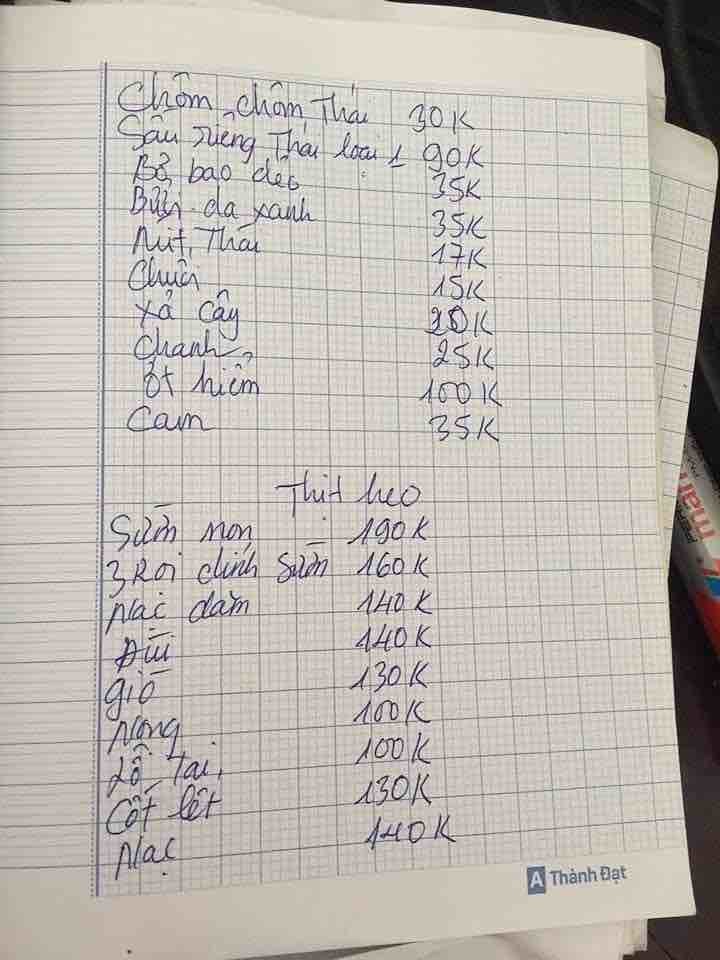 Chôm chôm Thái 30K
Sầu riêng Thái loại 1 90K
Bơ bao dẻo 35K
Bưởi da xanh 35K
Mít Thái 17K
Chuối 15K
Xả cây 20K
Chanh 25K
Ớt hiểm 100K
Cam 35K
Thịt heo
Sườn non 190K
3 Rọi dính Sườn 160K
Nạc dăm 140K
Đùi 140K
giò 130K
Nọng 100K
Lỗ Tai 100K
Cốt lết 130K
Nạc 140K
A Thành Đạt